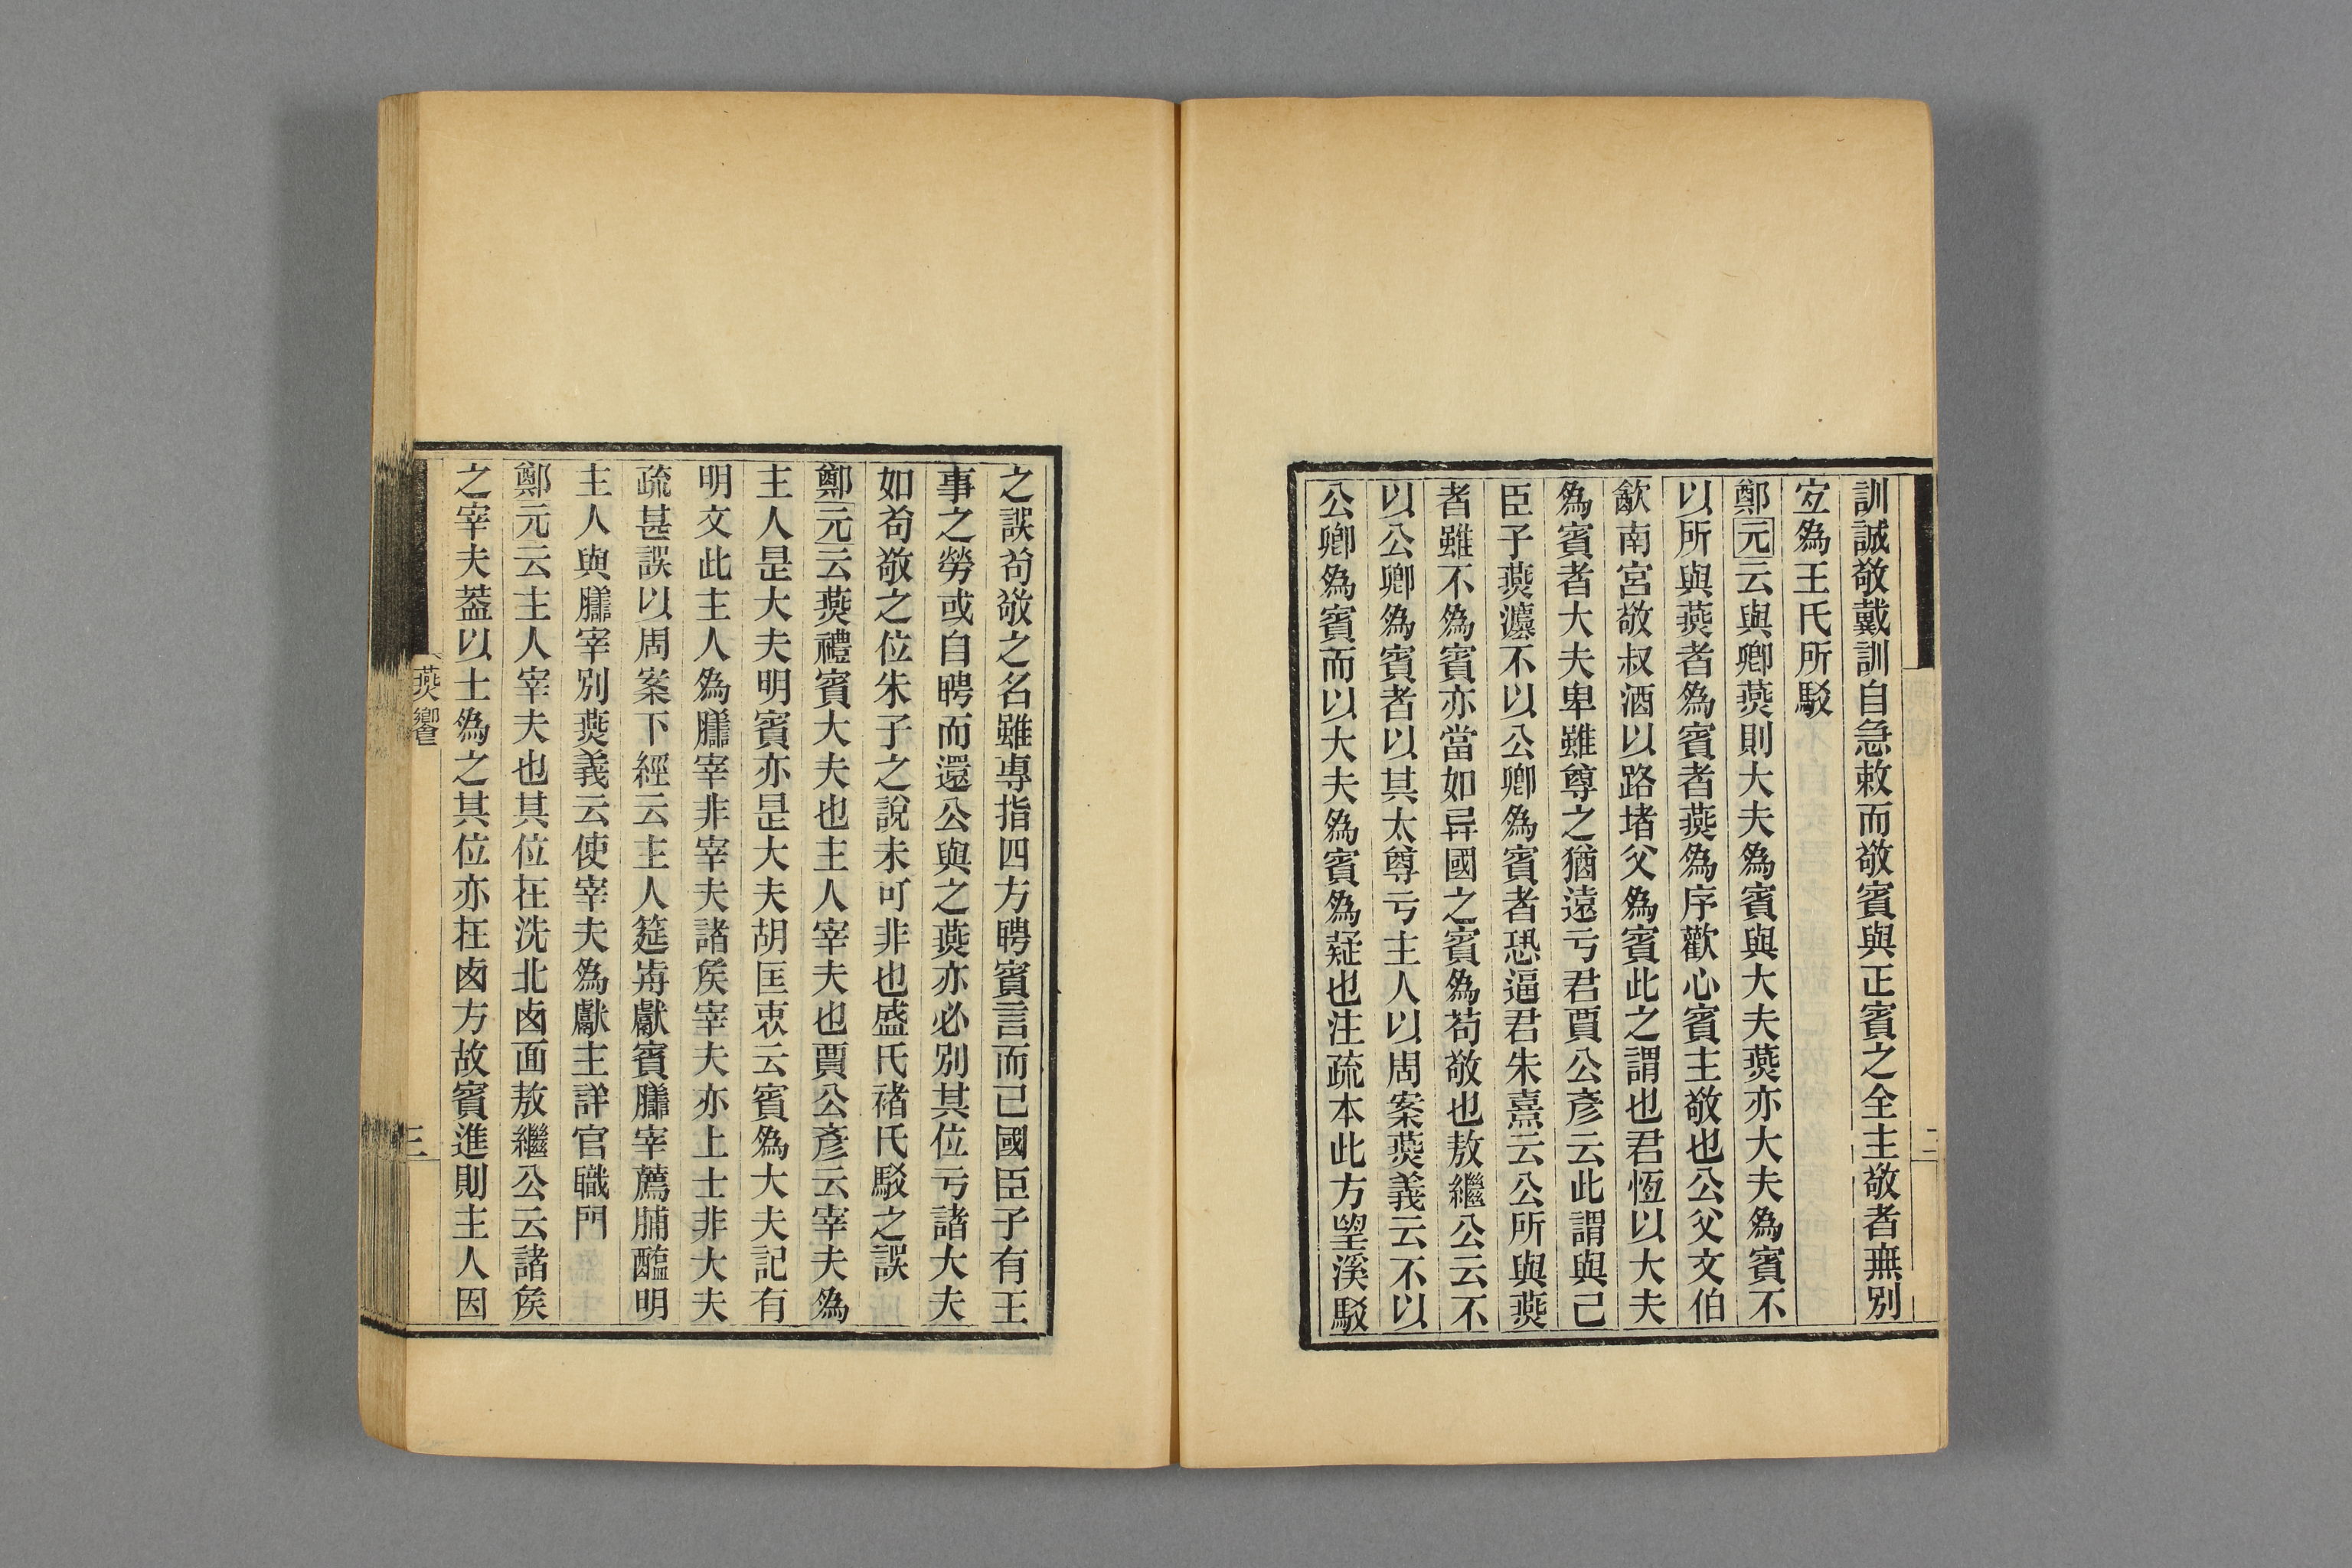 訓誠敬戴訓自急敕而敬賓與正賓之全主敬者無別
宐爲王氏所駁
鄭元云與卿燕則大夫爲賓與大夫燕亦大夫爲賓不
以所與燕者爲賓者燕爲序歡心賓主敬也公父文伯
㱃南宮敬叔酒以路堵父爲賓此之謂也君恆以大夫
爲賓者大夫卑雖尊之猶遠亏君賈公彥云此謂與己
臣子燕灋不以公卿爲賓者恐逼君朱熹云公所與燕
者雖不爲賓亦當如异國之賓爲苟敬也敖繼公云不
以公卿爲賓者以其太尊亏主人以周案燕義云不以
公卿爲賓而以大夫爲賓爲疑也注疏本此方朢溪駁
之誤苟敬之名雖專指四方聘賓言而己國臣子有王
事之勞或自聘而還公與之燕亦必別其位亏諸大夫
如苟敬之位朱子之說未可非也盛氏褚氏駁之誤
鄭元云燕禮賓大夫也主人宰夫也賈公彥云宰夫爲
主人是大夫明賓亦是大夫胡匡衷云賓爲大夫記有
明文此主人爲膳宰非宰夫諸矦宰夫亦上士非大夫
疏甚誤以周案下經云主人筵歬獻賓膳宰薦脯醢明
主人與膳宰別燕義云使宰夫爲獻主詳官職門
鄭元云主人宰夫也其位在洗北卤面敖繼公云諸矦
之宰夫葢以士爲之其位亦在卤方故賓進則主人因
燕饗
三